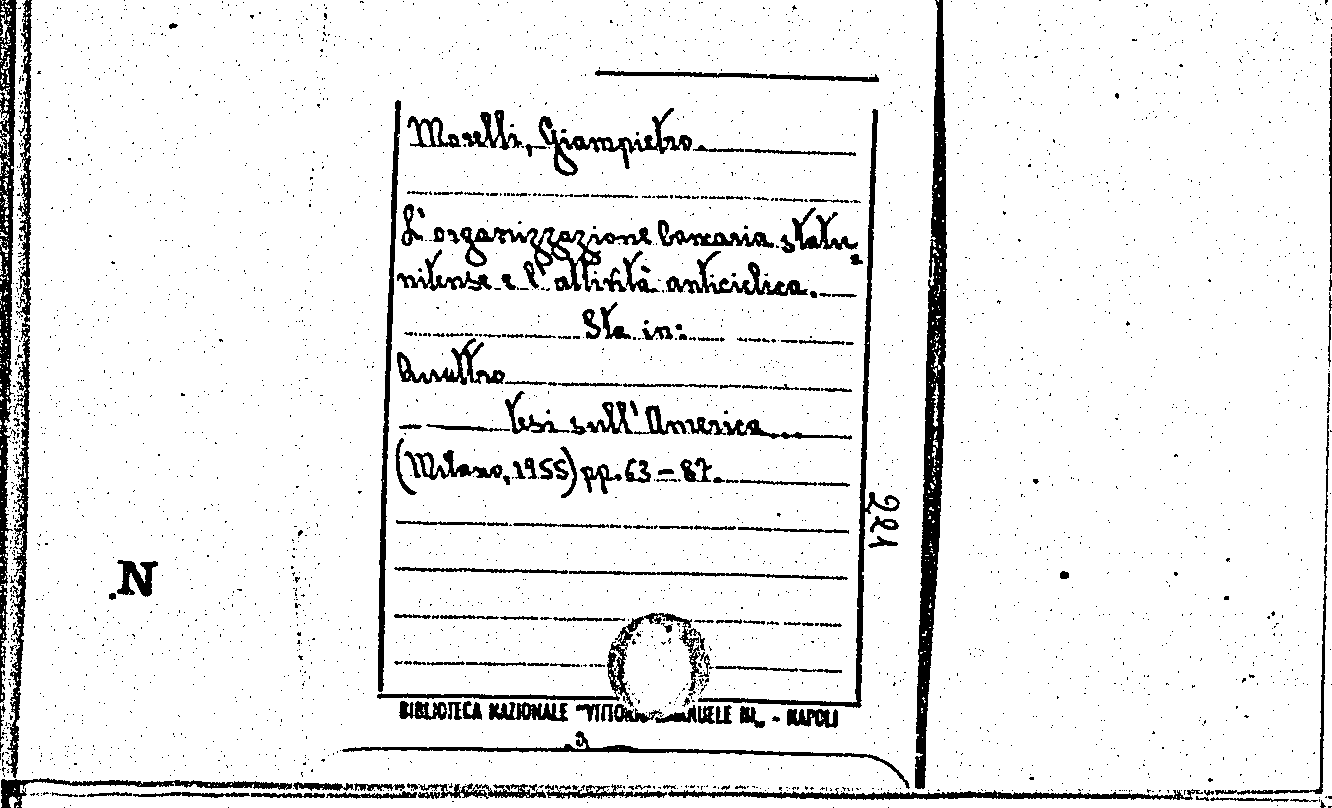 Moselli, Giampietro.
L'organizzazione bancaria statu_
nitense e l'attività anticiclica.
Sta in:
Quattro
tesi sull'America...
(Milano, 1955) pp. 63-87.
221
.N
BIBLIOTECA NAZIONALE "VITTORIO EMANUELE III„ - NAPOLI